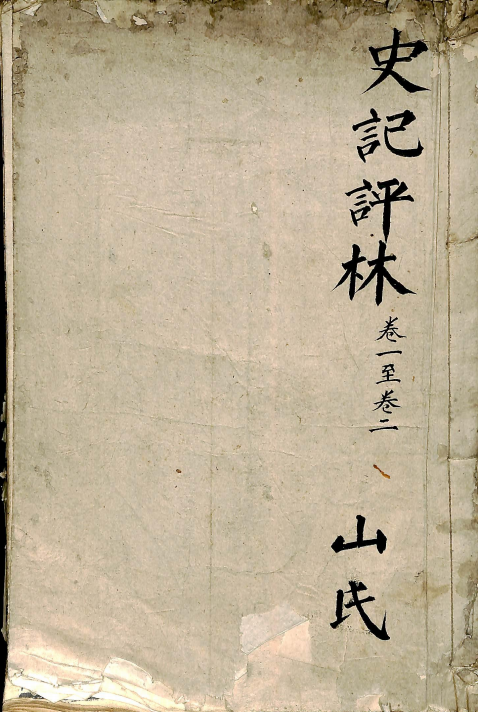 史記評林
卷一至卷二
山氏